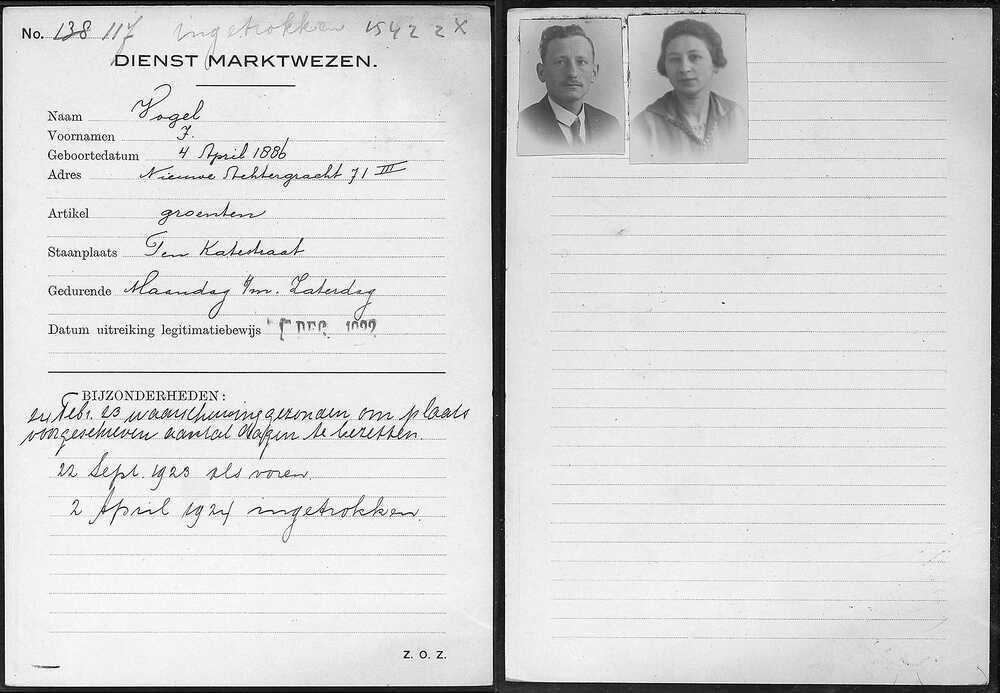 No. 138 117 ingetrokken 1542 2 X
DIENST MARKTWEZEN.
Naam Vogel
Voornamen J.
Geboortedatum 4 April 1886
Adres Nieuwe Achtergracht 71 III
Artikel groenten
Staanplaats Ten Katestraat
Gedurende Maandag t/m. Zaterdag
Datum uitreiking legitimatiebewijs DEC. 1922
BIJZONDERHEDEN:
22 Febr. 23 waarschuwing gezonden om plaats
voorgeschreven aantal dagen te bezetten.
22 Sept. 1923 als voren.
2 April 1924 ingetrokken.
Z. O. Z.